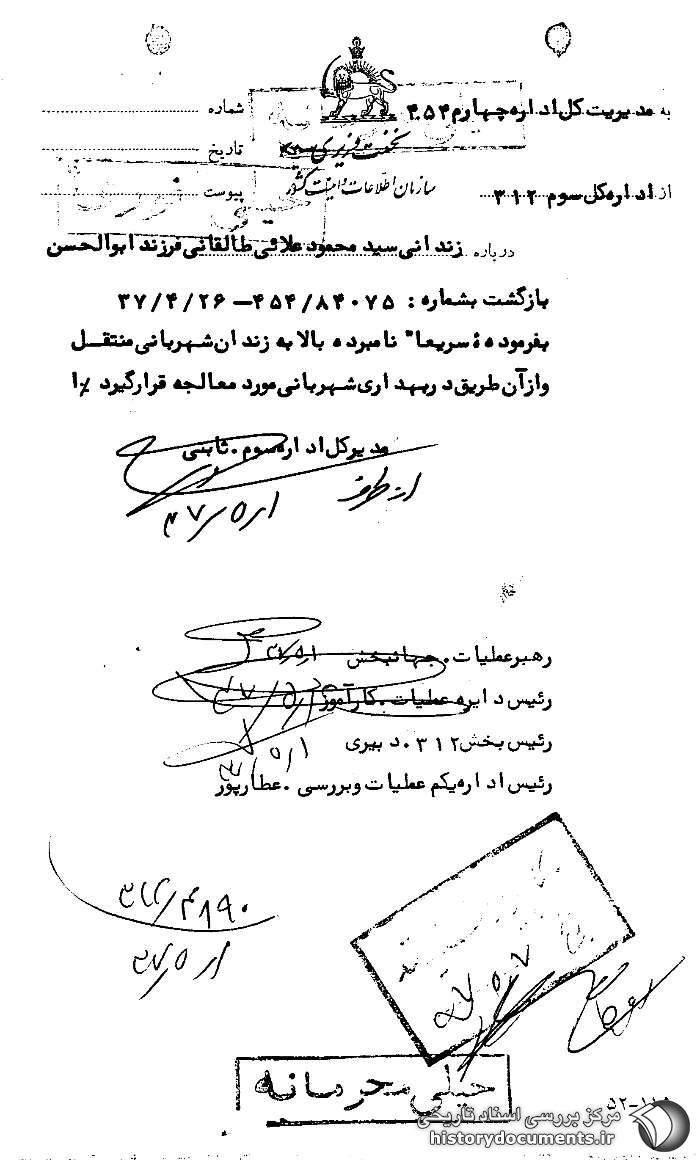 به مدیریت کل اداره چهارم ۴۵۴
شماره
نخست وزیری
تاریخ
از اداره کل سوم ۳۱۲
سازمان اطلاعات و امنیت کشور
پیوست
درباره زندانی سید محمود علائی طالقانی فرزند ابوالحسن
بازگشت بشماره: ۴۵۴/۸۴۰۷۵ – ۳۷/۴/۲۶
بفرموده سریعا" نامبرده بالا به زندان شهربانی منتقل
و از آن طریق در بهداری شهربانی مورد معالجه قرارگیرد
مدیرکل اداره سوم. ثابتی
از طرف
رهبر عملیات. جهانبخش
رئیس دایره عملیات. کارآموز
رئیس بخش ۳۱۲. دبیری
رئیس اداره یکم عملیات و بررسی. عطارپور
خیلی محرمانه
مرکز بررسی اسناد تاریخی
historydocuments.ir